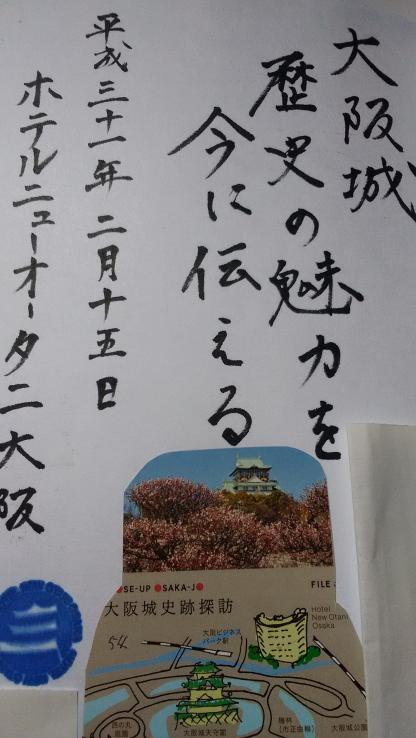 大阪城
歴史の魅力を
今に伝える
平成三十一年 二月十五日
ホテルニューオータニ大阪
SE-UP OSAKA-JO
FILE
大阪城史跡探訪
54
大阪ビジネス
パーク駅
Hotel
New Otani
Osaka
西の丸
庭園
大阪城天守閣
梅林
(市正曲輪)
大阪城公園